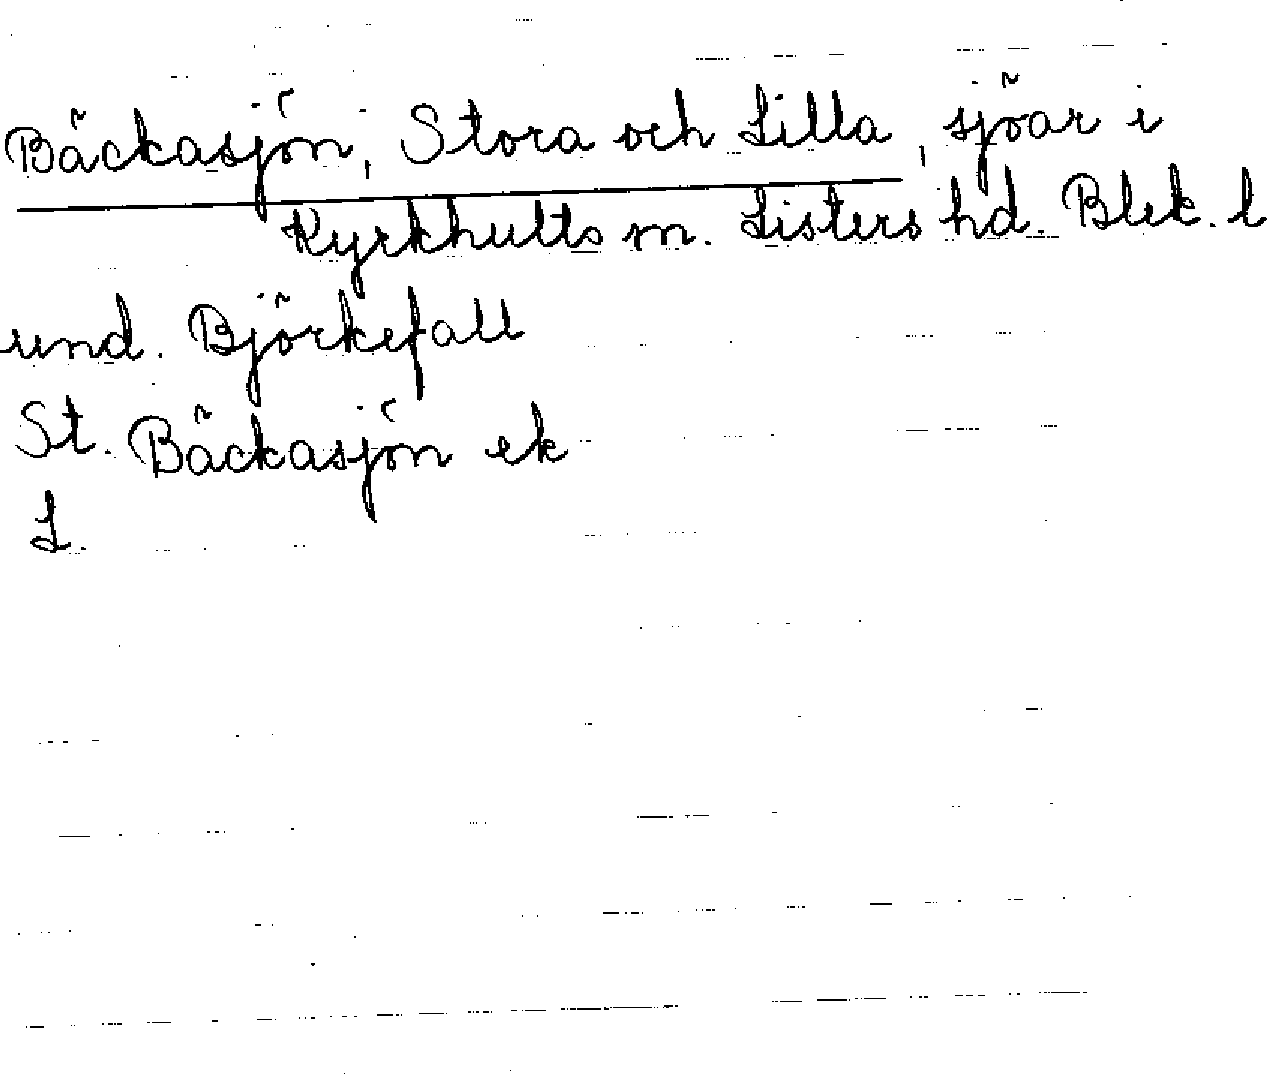 Bäckasjön, Stora och Lilla, sjöar i
Kyrkhults sn. Listers hd. Blek. l
und. Björkefall
St. Bäckasjön ek
L.